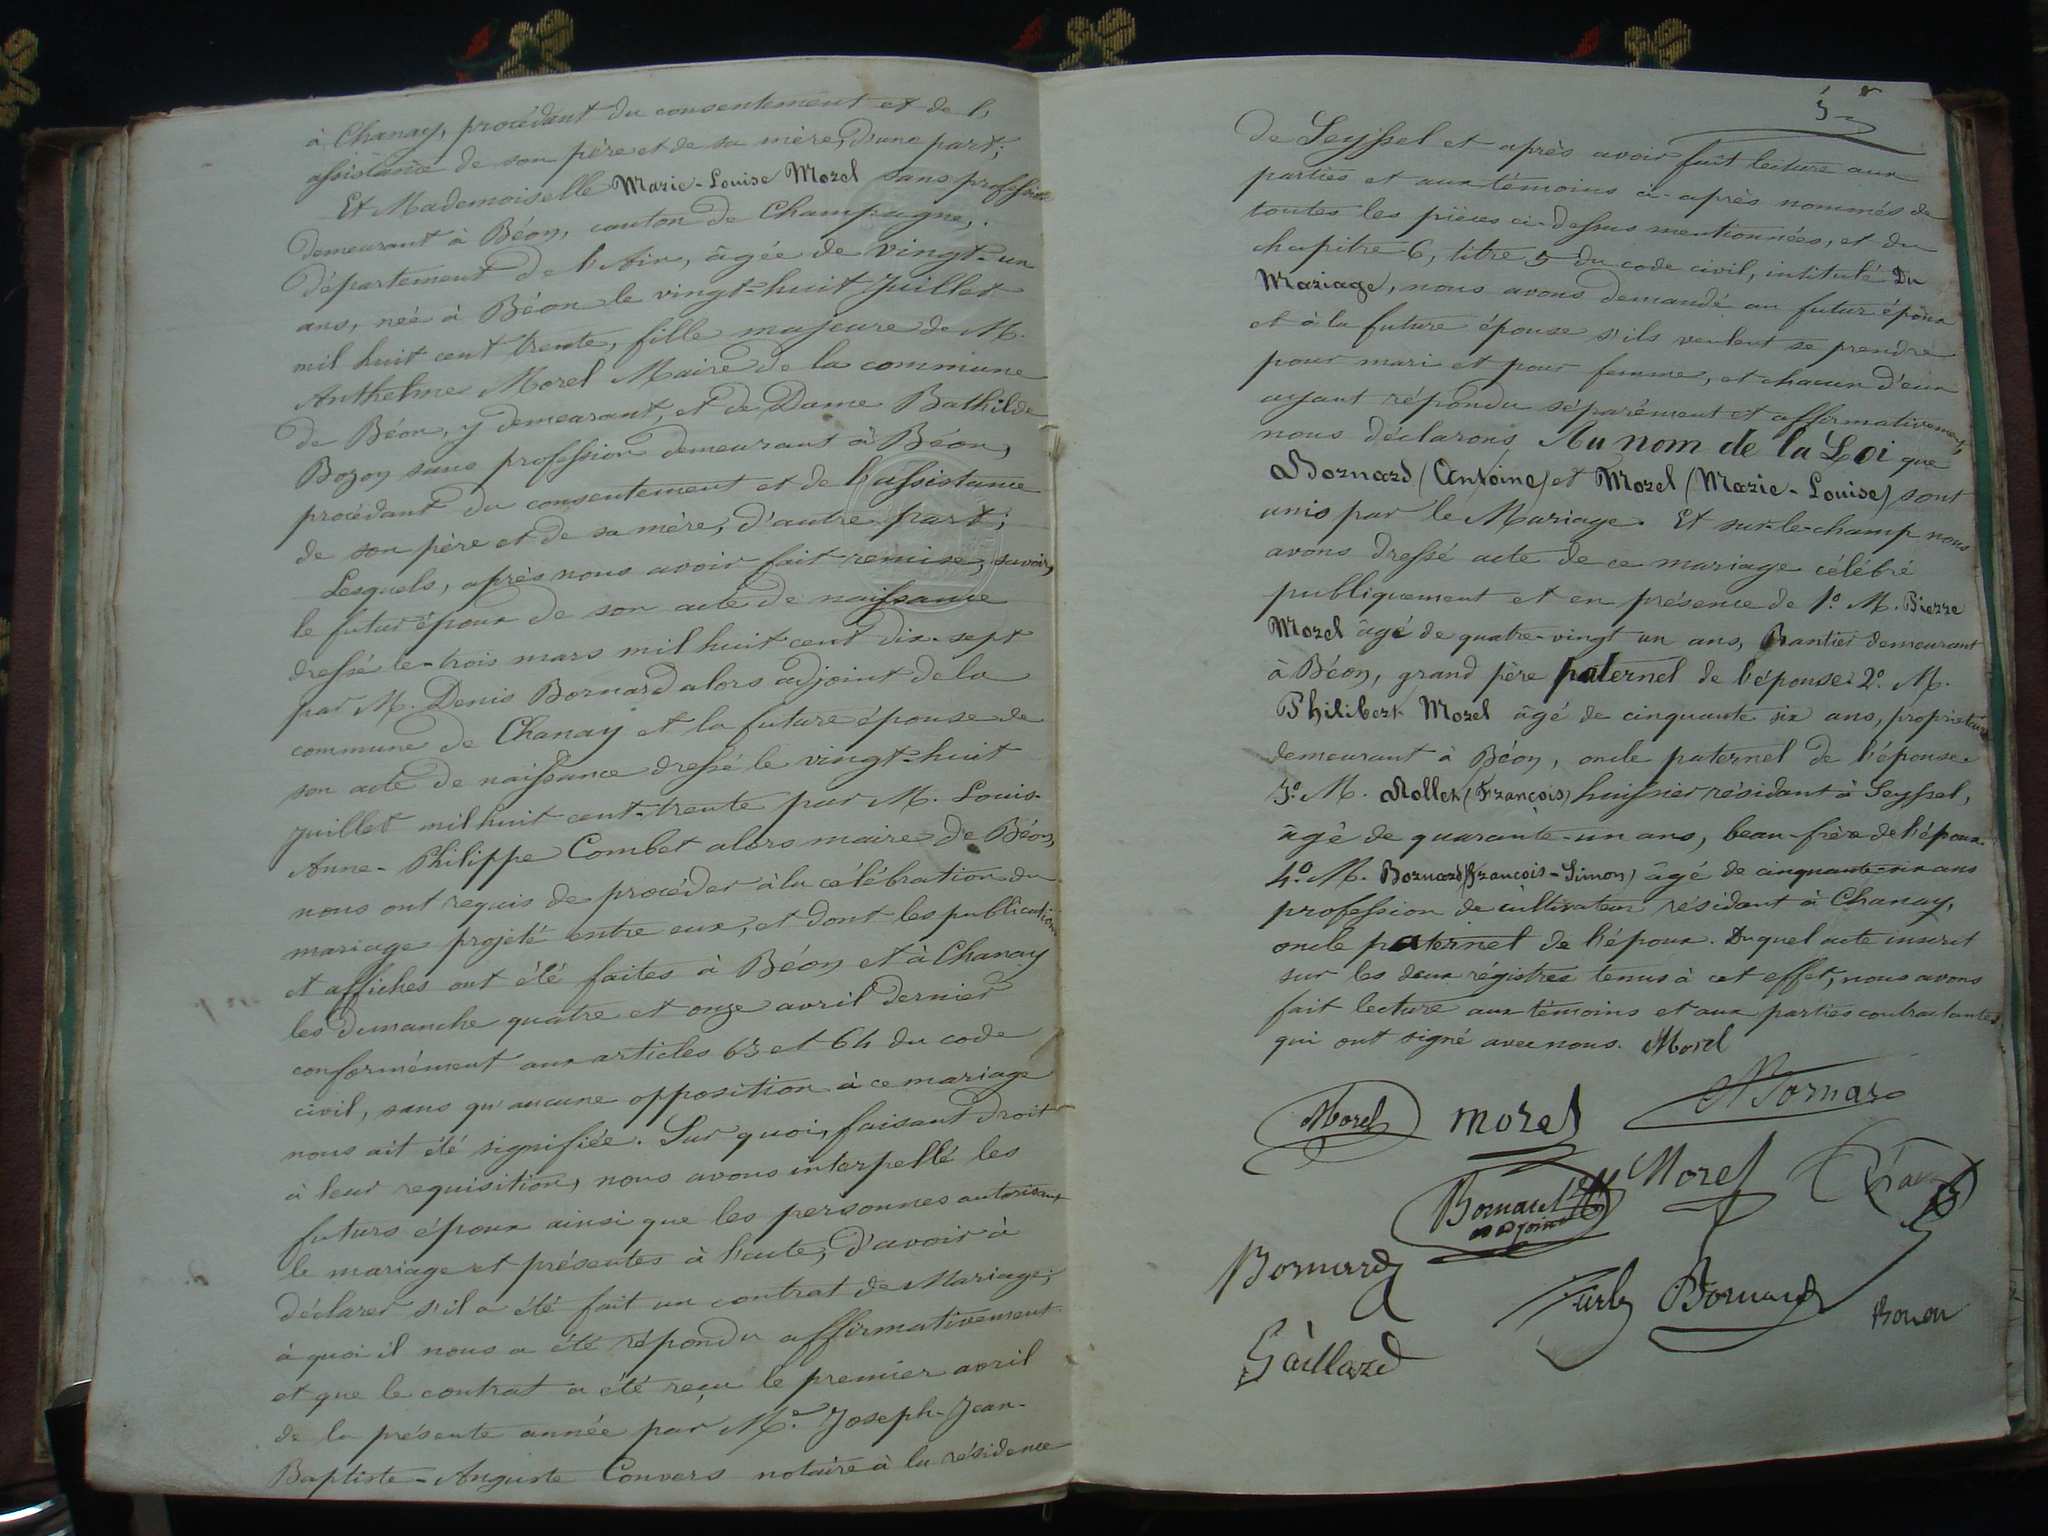 à Chanay, procédant du consentement et de l'
assistance de son père et de sa mère, d'une part;
Et Mademoiselle Marie-Louise Morel sans profession
demeurant à Béon, canton de Champagne,
département de l'Ain, âgée de vingt-un
ans, née à Béon le vingt-huit Juillet
mil huit cent trente, fille majeure de M.
Anthelme Morel Maire de la commune
de Béon, y demeurant, et de Dame Bathilde
Bozon sans profession demeurant à Béon,
procédant du consentement et de l'assistance
de son père et de sa mère, d'autre part;
Lesquels, après nous avoir fait remise, savoir,
le futur époux de son acte de naissance
dressé le trois mars mil huit cent dix-sept
par M. Denis Bornard alors adjoint de la
commune de Chanay et la future épouse de
son acte de naissance dressé le vingt-huit
juillet mil huit cent-trente par M. Louis-
Anne-Philippe Combet alors maire de Béon,
nous ont requis de procéder à la célébration du
mariage projeté entre eux, et dont les publications
et affiches ont été faites à Béon et à Chanay
les dimanche quatre et onze avril dernier
conformément aux articles 63 et 64 du code
civil, sans qu'aucune opposition à ce mariage
nous ait été signifiée. Sur quoi, faisant droit
à leur requisition, nous avons interpellé les
futurs époux ainsi que les personnes autorisant
le mariage et présentes à l'acte, d'avoir à
déclarer s'il a été fait un contrat de Mariage;
à quoi il nous a été répondu affirmativement
et que le contrat a été reçu le premier avril
de la présente année par Me. Joseph-Jean-
Baptiste-Auguste Convers notaire à la résidence
de Seyssel et après avoir fait lecture aux
parties et aux témoins ci-après nommés de
toutes les pièces ci-dessus mentionnées, et du
chapitre 6, titre 5 du code civil, intitulé Du
Mariage, nous avons demandé au futur époux
et à la future épouse s'ils veulent se prendre
pour mari et pour femme, et chacun d'eux
ayant répondu séparément et affirmativement,
nous déclarons Au nom de la Loi que
Bornard (Antoine) et Morel (Marie-Louise) sont
unis par le Mariage. Et sur-le-champ nous
avons dressé acte de ce mariage célébré
publiquement et en présence de 1.o M. Pierre
Morel âgé de quatre-vingt un ans, Rantier demeurant
à Béon, grand père paternel de l'épouse. 2.o M.
Philibert Morel âgé de cinquante six ans, propriétaire
demeurant à Béon, oncle paternel de l'épouse.
3.o M. Rollet (François) huissier résidant à Seyssel,
âgé de quarante-un ans, beau-frère de l'époux.
4.o M. Bornard (François-Simon) âgé de cinquante-six ans
profession de cultivateur résidant à Chanay,
oncle paternel de l'époux. Duquel acte inscrit
sur les deux régistres tenus à cet effet, nous avons
fait lecture aux témoins et aux parties contractantes
qui ont signé avec nous. Morel
Morel morel A Bornard
Bornard adjoint Morel
Bornard Bornard Bozon
Gaillard